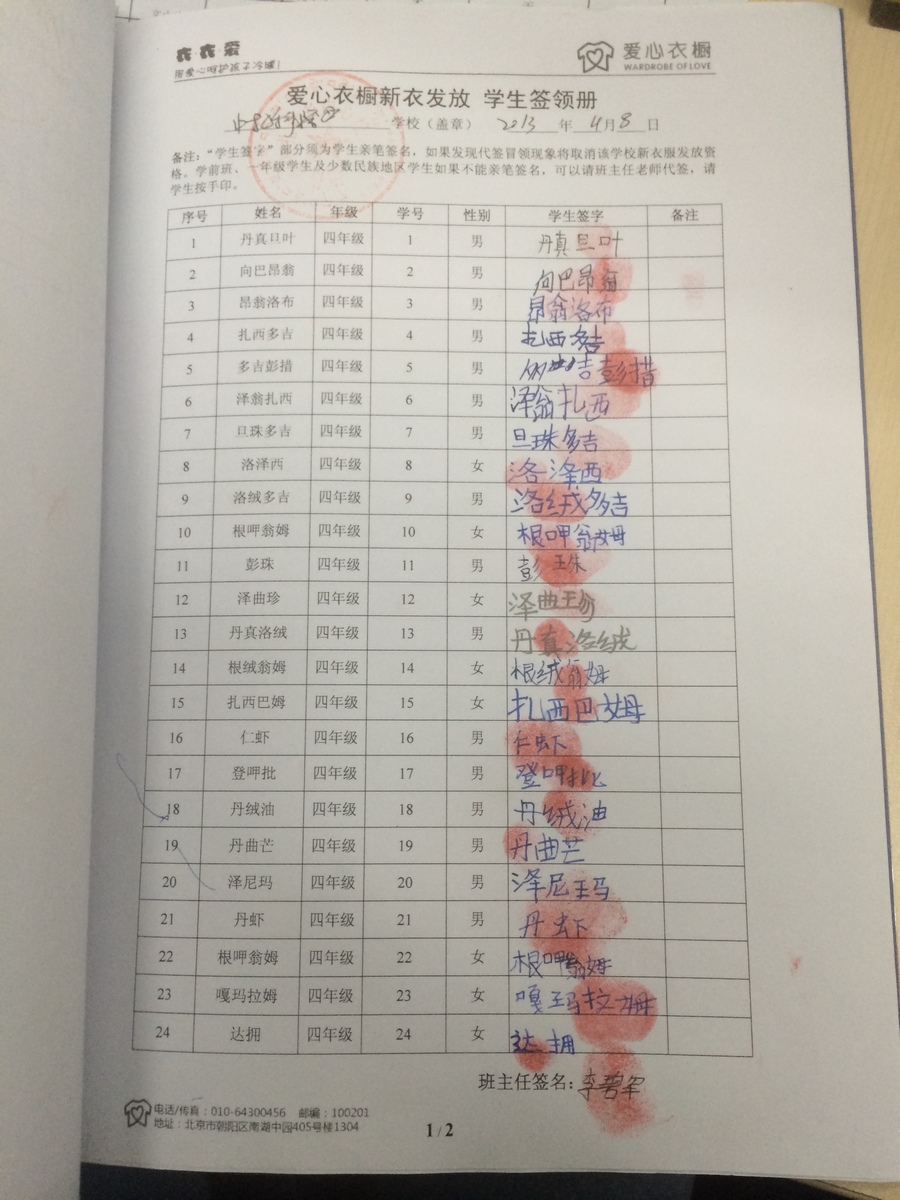 衣衣爱
用爱心呵护孩子冷暖!
爱心衣橱
WARDROBE OF LOVE
爱心衣橱新衣发放 学生签领册
学校（盖章） 2013 年 4 月 8 日
备注：“学生签字”部分须为学生亲笔签名，如果发现代签冒领现象将取消该学校新衣服发放资
格。学前班、一年级学生及少数民族地区学生如果不能亲笔签名，可以请班主任老师代签，请
学生按手印。
序号 姓名 年级 学号 性别 学生签字 备注
1 丹真旦叶 四年级 1 男 丹真旦叶
2 向巴昂翁 四年级 2 男 向巴昂翁
3 昂翁洛布 四年级 3 男 昂翁洛布
4 扎西多吉 四年级 4 男 扎西多吉
5 多吉彭措 四年级 5 男 吉彭措
6 泽翁扎西 四年级 6 男 泽翁扎西
7 旦珠多吉 四年级 7 男 旦珠多吉
8 洛泽西 四年级 8 女 洛泽西
9 洛绒多吉 四年级 9 男 洛绒多吉
10 根呷翁姆 四年级 10 女 根呷翁姆
11 彭珠 四年级 11 男 彭珠
12 泽曲珍 四年级 12 女 泽曲珍
13 丹真洛绒 四年级 13 男 丹真洛绒
14 根绒翁姆 四年级 14 女 根绒翁姆
15 扎西巴姆 四年级 15 女 扎西巴姆
16 仁虾 四年级 16 男 仁虾
17 登呷批 四年级 17 男 登呷批
18 丹绒油 四年级 18 男 丹绒油
19 丹曲芒 四年级 19 男 丹曲芒
20 泽尼玛 四年级 20 男 泽尼玛
21 丹虾 四年级 21 男 丹虾
22 根呷翁姆 四年级 22 女 根呷翁姆
23 嘎玛拉姆 四年级 23 女 嘎玛拉姆
24 达拥 四年级 24 女 达拥
班主任签名：李碧军
电话/传真：010-64300456 邮编：100201
地址：北京市朝阳区南湖中园405号楼1304
1 / 2